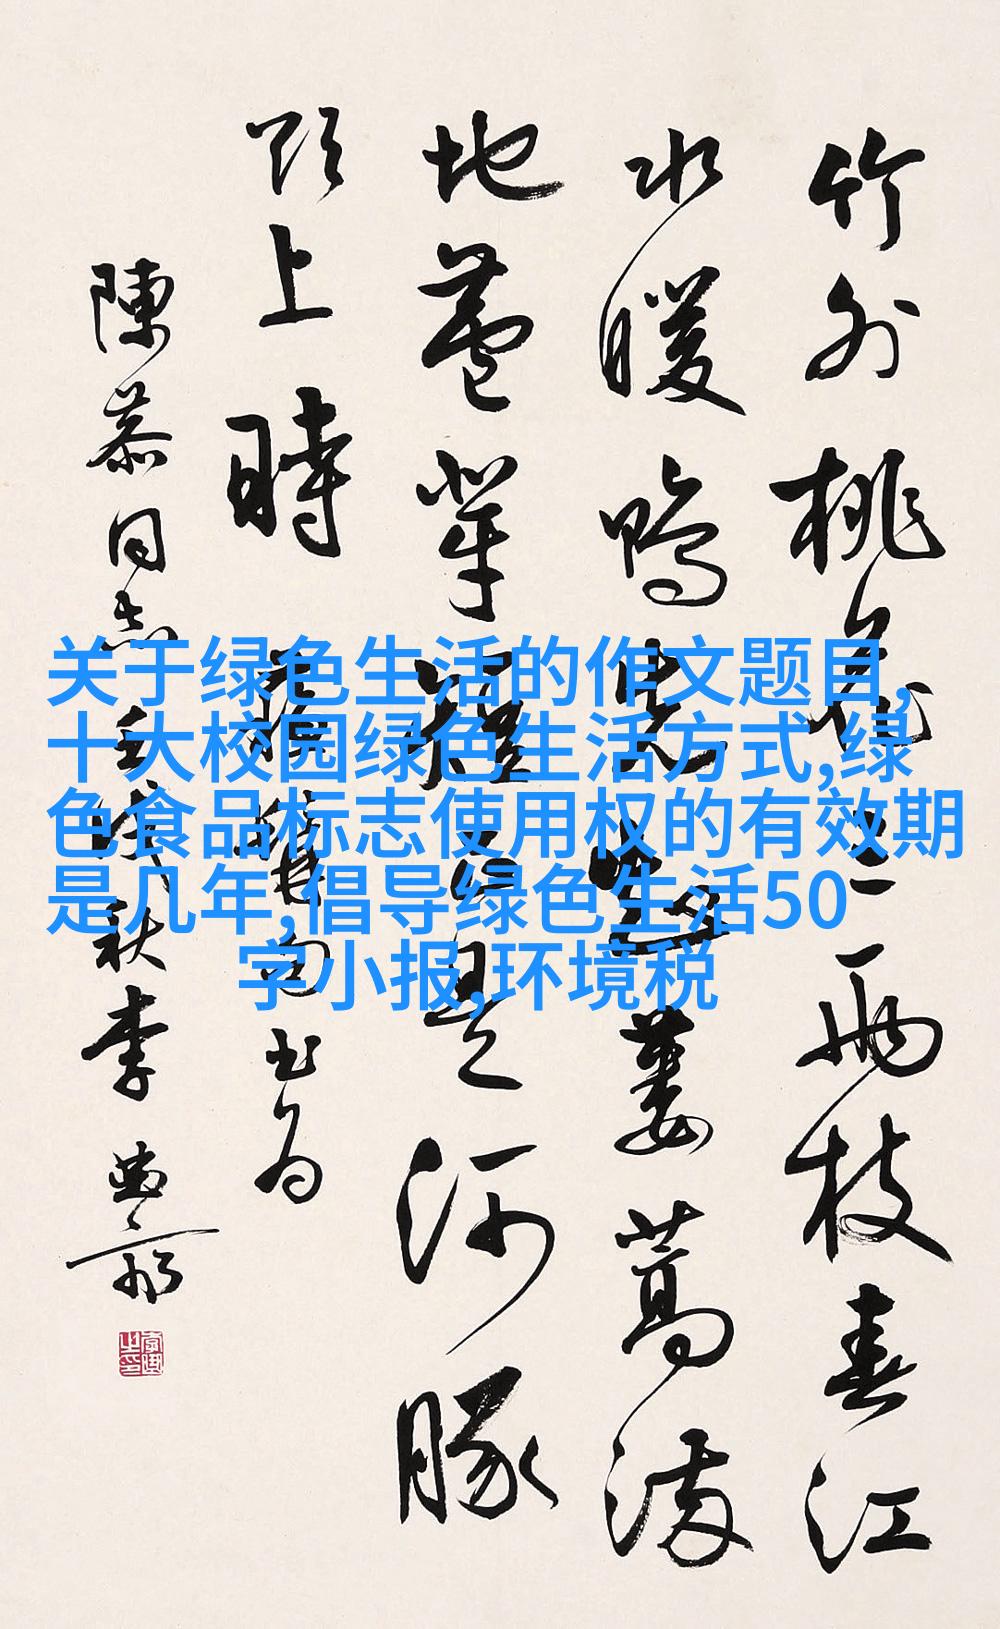 竹外桃花三兩枝春江
水暖鴨先知蔞蒿滿
地蘆芽短正是河豚
欲上時 句书为
同志壬戌秋李
关于绿色生活的作文题目,
十大校园绿色生活方式,绿
色食品标志使用权的有效期
是几年,倡导绿色生活50
字小报,环境税